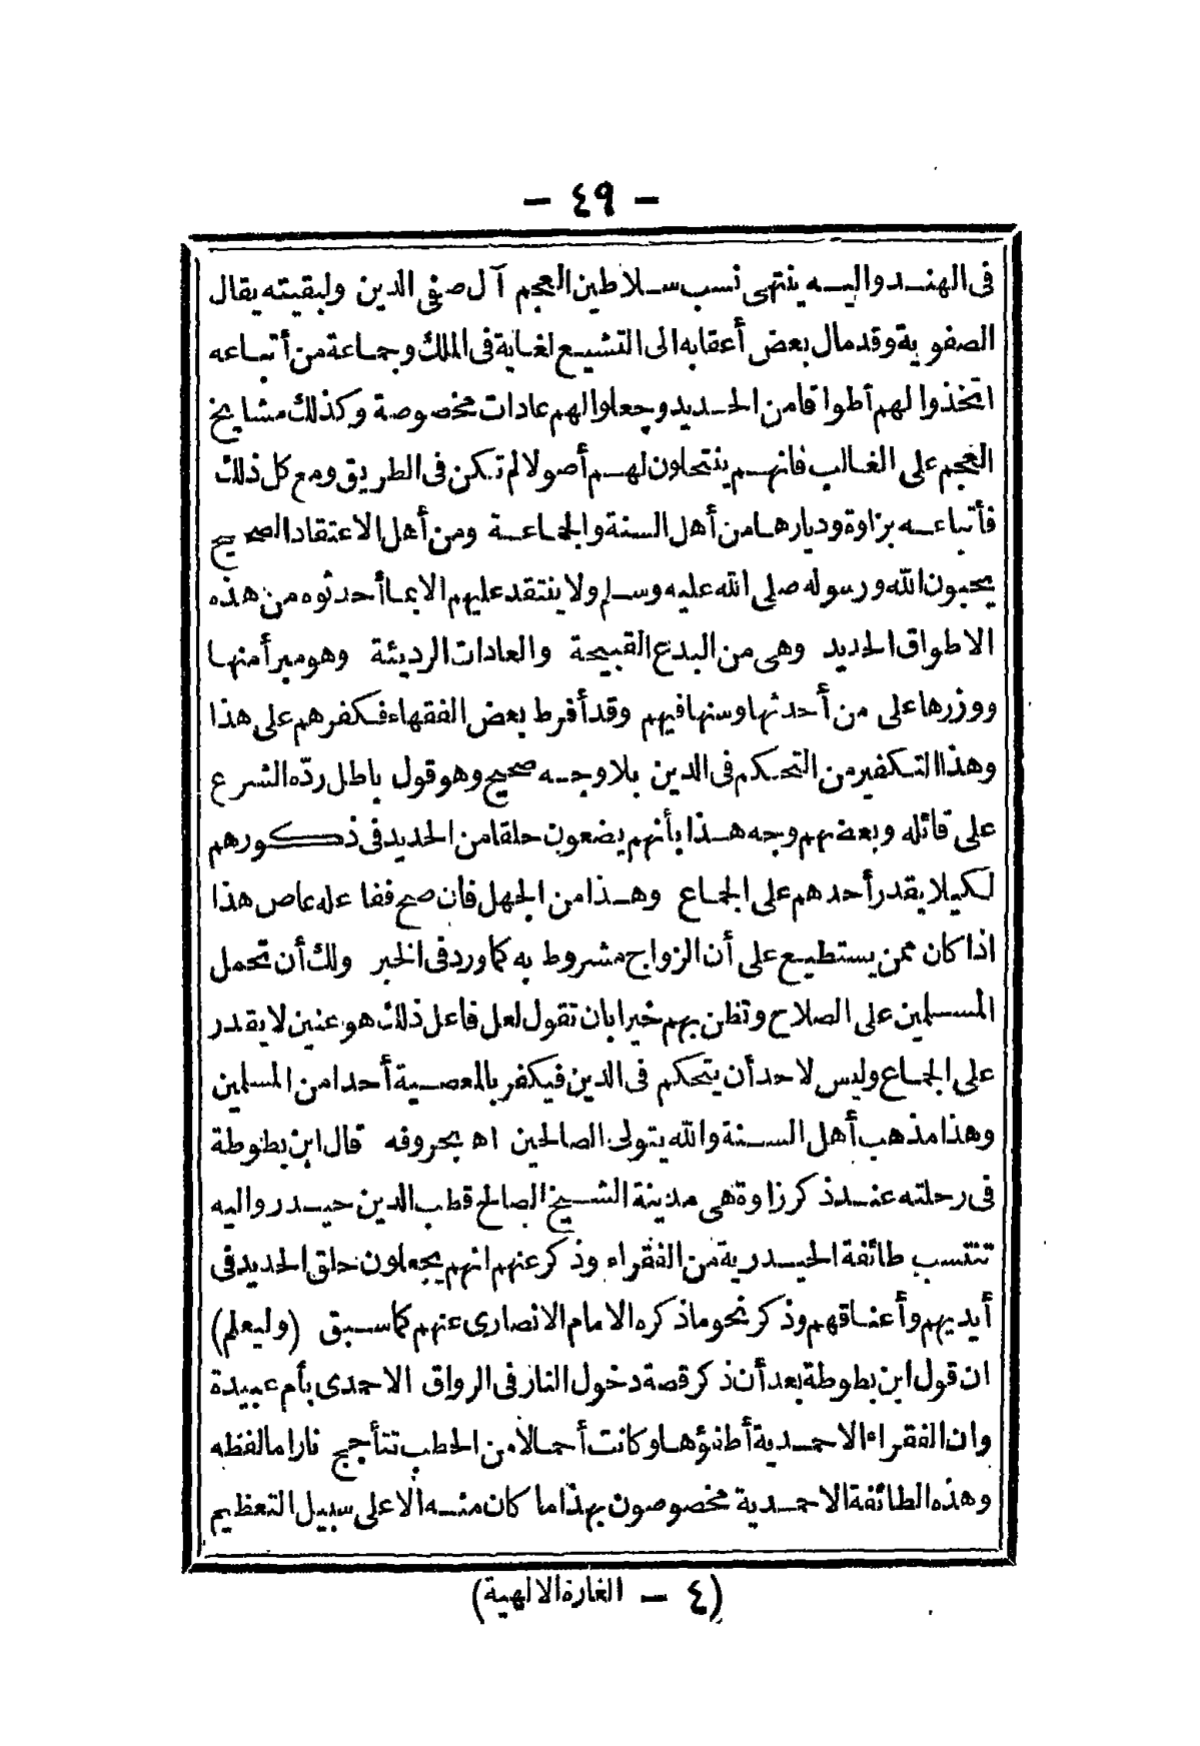 - ٤٩ -
فى الهند واليه ينتهى نسب سلاطين العجم آل صفي الدين ولبقيته يقال
الصفوية وقد مال بعض أعقابه الى التشيع لغاية فى الملك وجماعة من أتباعه
اتخذوا لهم أطواقا من الحديد وجعلوا لهم عادات مخصوصة وكذلك مشايخ
العجم على الغالب فانهم ينتحلون لهم أصولا لم تكن فى الطريق ومع كل ذلك
فأتباعه بزاوة وديارها من أهل السنة والجماعة ومن أهل الاعتقاد الصحيح
يحبون الله ورسوله صلى الله عليه وسلم ولا ينتقد عليهم الا بما أحدثوه من هذه
الاطواق الحديد وهى من البدع القبيحة والعادات الرديئة وهو مبرأ منها
ووزرها على من أحدثها وسنها فيهم وقد أفرط بعض الفقهاء فكفرهم على هذا
وهذا التكفير من التحكم فى الدين بلا وجه صحيح وهو قول باطل ردّه الشرع
على قائله وبعضهم وجه هذا بأنهم يضعون حلقا من الحديد فى ذكورهم
لكيلا يقدر أحدهم على الجماع وهذا من الجهل فان صح ففاعله عاص هذا
اذا كان ممن يستطيع على أن الزواج مشروط به كما ورد فى الخبر ولك أن تحمل
المسلمين على الصلاح وتظن بهم خيرا بان تقول لعل فاعل ذلك هو عنين لا يقدر
على الجماع وليس لاحد أن يتحكم فى الدين فيكفر بالمعصية أحدا من المسلمين
وهذا مذهب أهل السنة والله يتولى الصالحين اه بحروفه قال ابن بطوطة
فى رحلته عند ذكر زاوة هى مدينة الشيخ الصالح قطب الدين حيدر واليه
تنتسب طائفة الحيدرية من الفقراء وذكر عنهم انهم يجعلون حلق الحديد فى
أيديهم وأعناقهم وذكر نحو ما ذكره الامام الانصارى عنهم كما سبق (وليعلم)
ان قول ابن بطوطة بعد أن ذكر قصة دخول النار فى الرواق الاحمدى بأم عبيدة
وان الفقراء الاحمدية أطفؤها وكانت أحمالا من الحطب تتأجج نارا ما لفظه
وهذه الطائفة الاحمدية مخصوصون بهذا ما كان منه الا على سبيل التعظيم
(٤ - الغارة الالهية)